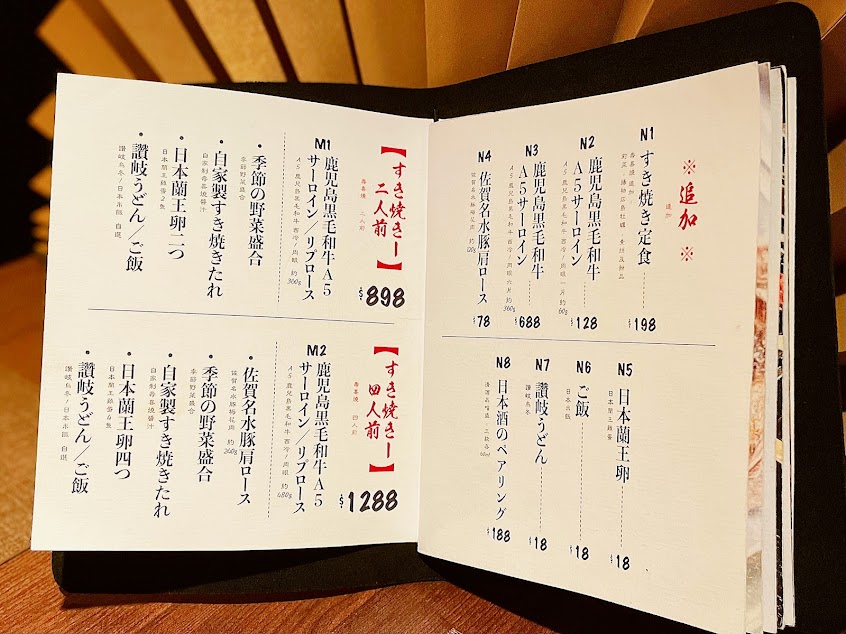 ※追加※
追加
N1
すき焼き定食
$198
N2
鹿児島黒毛和牛
A5サーロイン
A5鹿児島黑毛和牛西冷/肉眼一片 約60g
$128
N3
鹿児島黒毛和牛
A5サーロイン
A5鹿児島黑毛和牛西冷/肉眼六片 約360g
$688
N4
佐賀名水豚肩ロース
$78
N5
日本蘭王卵
日本蘭王雞蛋
$18
N6
ご飯
日本米飯
$18
N7
讃岐うどん
讃岐烏冬
$18
N8
日本酒のペアリング
$188
【すき焼きー
二人前】
壽喜燒 二人前
$898
M1
鹿児島黒毛和牛A5
サーロイン/リブロース
A5鹿児島黑毛和牛西冷/肉眼 約300g
・季節の野菜盛合
季節野菜盛合
・自家製すき焼きたれ
自家制壽喜燒醬汁
・日本蘭王卵二つ
日本蘭王雞蛋2隻
・讃岐うどん/ご飯
讃岐烏冬/日本米飯 自選
【すき焼きー
四人前】
壽喜燒 四人前
$1288
M2
鹿児島黒毛和牛A5
サーロイン/リブロース
A5鹿児島黑毛和牛西冷/肉眼 約480g
・佐賀名水豚肩ロース
佐賀名水豚梅花肉 約240g
・季節の野菜盛合
季節野菜盛合
・自家製すき焼きたれ
自家制壽喜燒醬汁
・日本蘭王卵四つ
日本蘭王雞蛋4隻
・讃岐うどん/ご飯
讃岐烏冬/日本米飯 自選